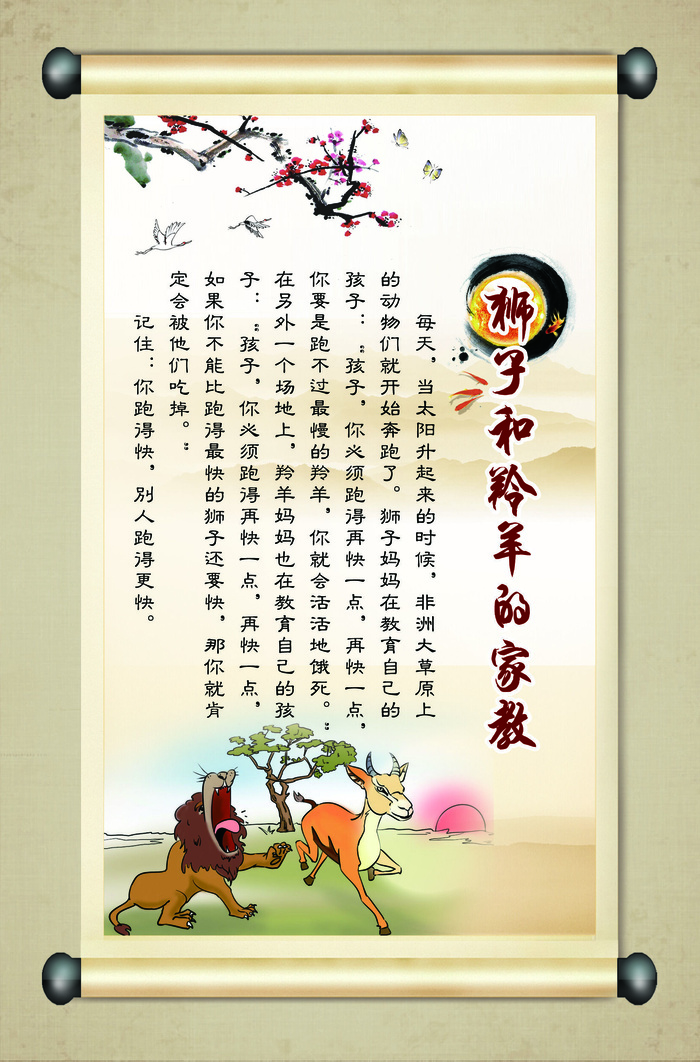 狮子和羚羊的家教
每天，当太阳升起来的时候，非洲大草原上
的动物们就开始奔跑了。狮子妈妈在教育自己的
孩子：“孩子，你必须跑得再快一点，再快一点，
你要是跑不过最慢的羚羊，你就会活活地饿死。”
在另外一个场地上，羚羊妈妈也在教育自己的孩
子：“孩子，你必须跑得再快一点，再快一点，
如果你不能比跑得最快的狮子还要快，那你就肯
定会被他们吃掉。”
记住：你跑得快，别人跑得更快。